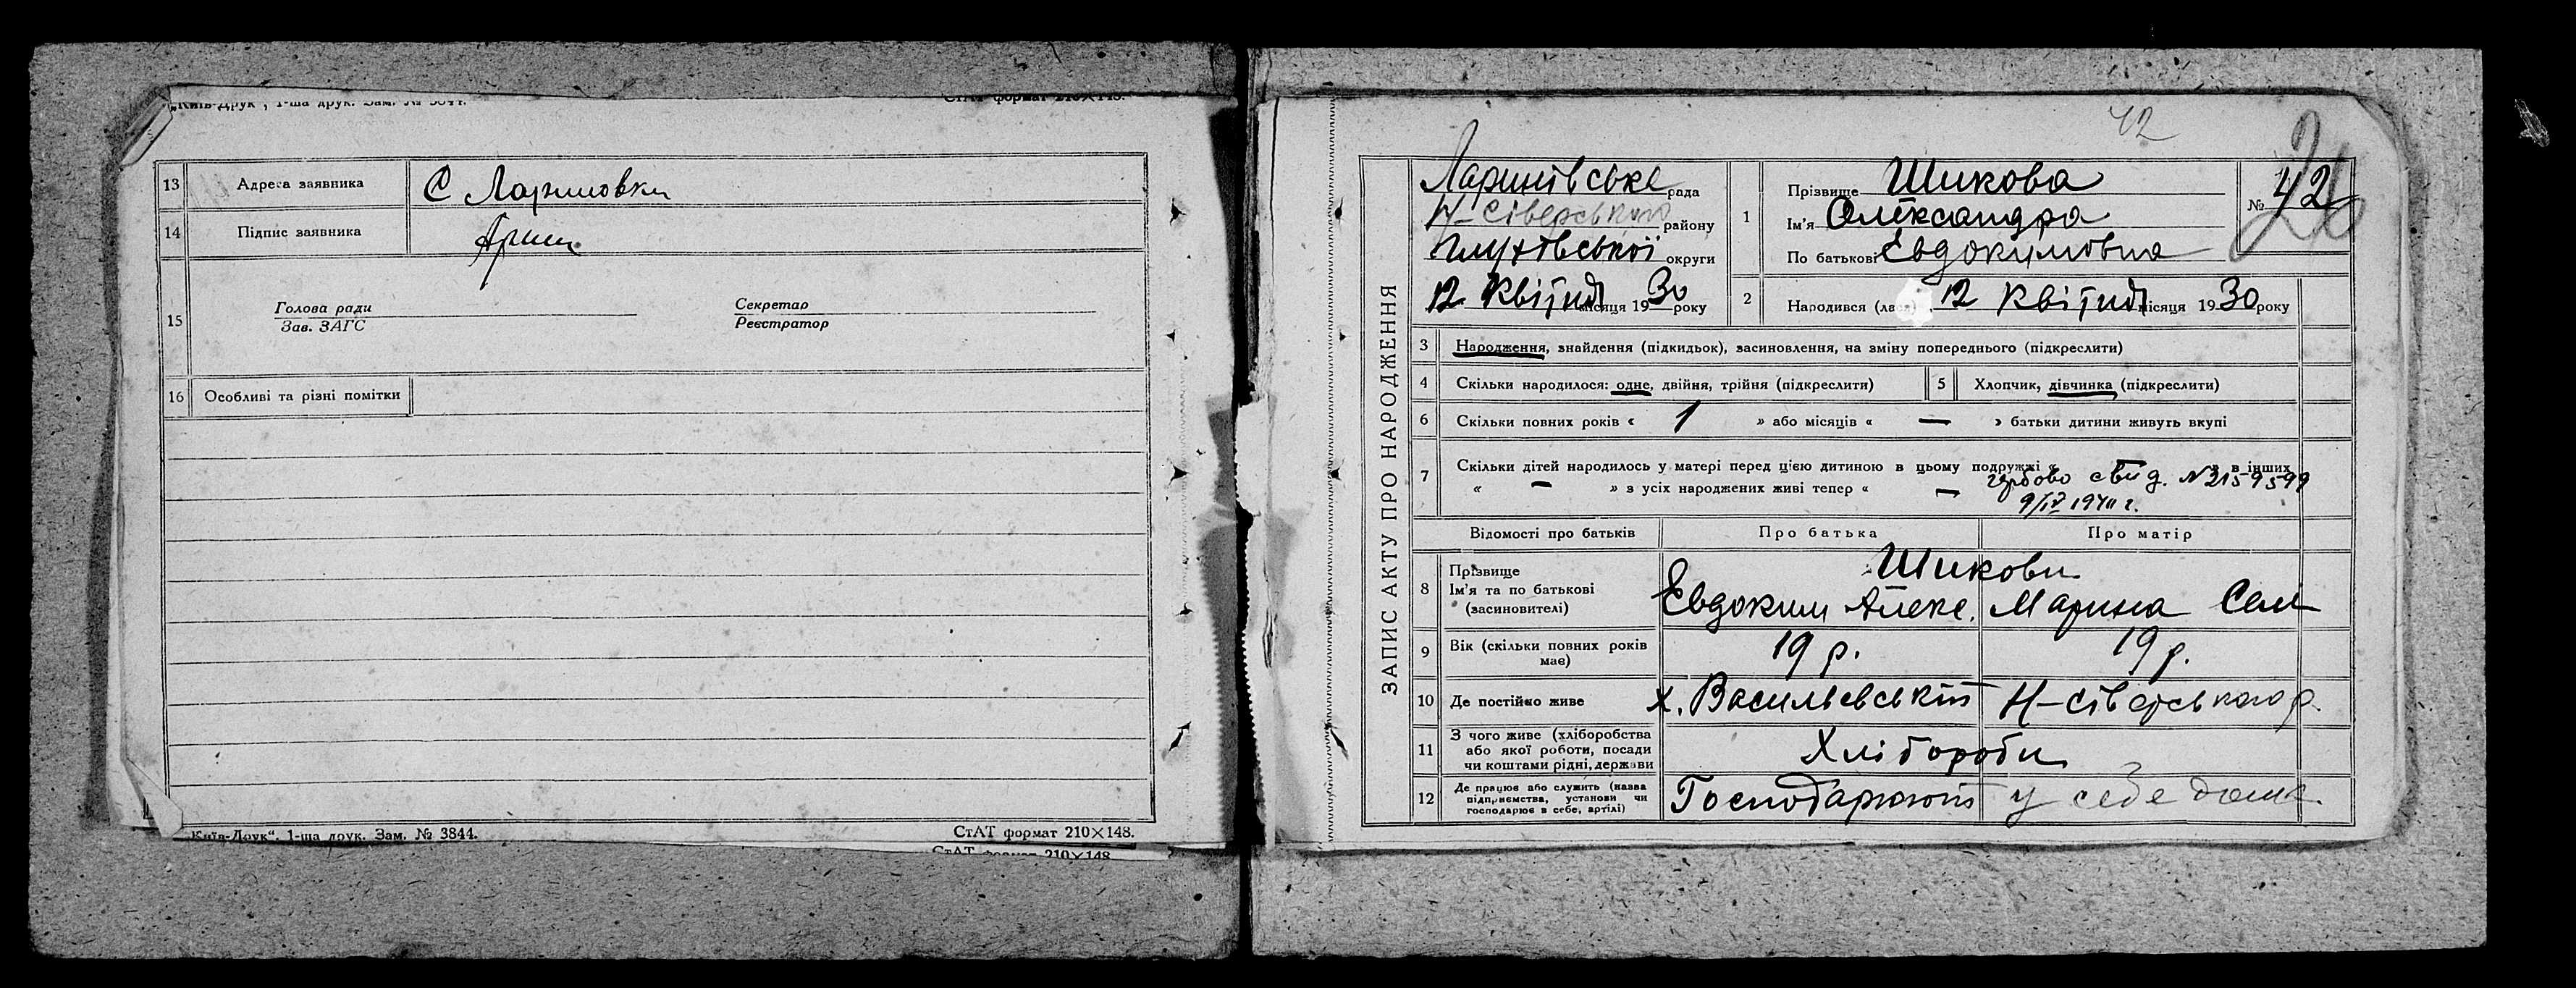 „Київ-Друк", 1-ша друк. Зам. № 3844.
СтАТ формат 210×148.
13 Адреса заявника С Лариновки
14 Підпис заявника
15
Голова ради
Зав. ЗАГС
Секретар
Реєстратор
16 Особливі та різні помітки
„Київ-Друк“. 1-ша друк. Зам. № 3844.
СтАТ формат 210×148.
СтАТ формат 210×148
42
26
ЗАПИС АКТУ ПРО НАРОДЖЕННЯ
Ларинівське рада
Н-Сіверського району
Глухівської округи
12 Квітня місяця 1930 року
1 Прізвище Шикова
Ім'я Олександра
По батькові Євдокимовна
№ 42
2 Народився (лася) 12 Квітня місяця 1930 року
3 Народження, знайдення (підкидьок), засиновлення, на зміну попереднього (підкреслити)
4 Скільки народилося: одне, двійня, трійня (підкреслити)
5 Хлопчик, дівчинка (підкреслити)
6 Скільки повних років « 1 » або місяців « — » батьки дитини живуть вкупі
7 Скільки дітей народилось у матері перед цією дитиною в цьому подружжі « — » в інших
« — » з усіх народжених живі тепер « —
свид. №
Відомості про батьків Про батька Про матір
8 Прізвище
Ім'я та по батькові
(засиновителі)
Шикови
Евдоким Алекс. Марина Сем
9 Вік (скільки повних років має) 19 р. 19 р.
10 Де постійно живе х. Васильевський Н-Сіверського р.
11 З чого живе (хліборобства
або якої роботи, посади
чи коштами рідні, держави
Хлібороби
12 Де працює або служить (назва
підприємства, установи чи
господарює в себе, артілі)
Господарюють у себе дома.